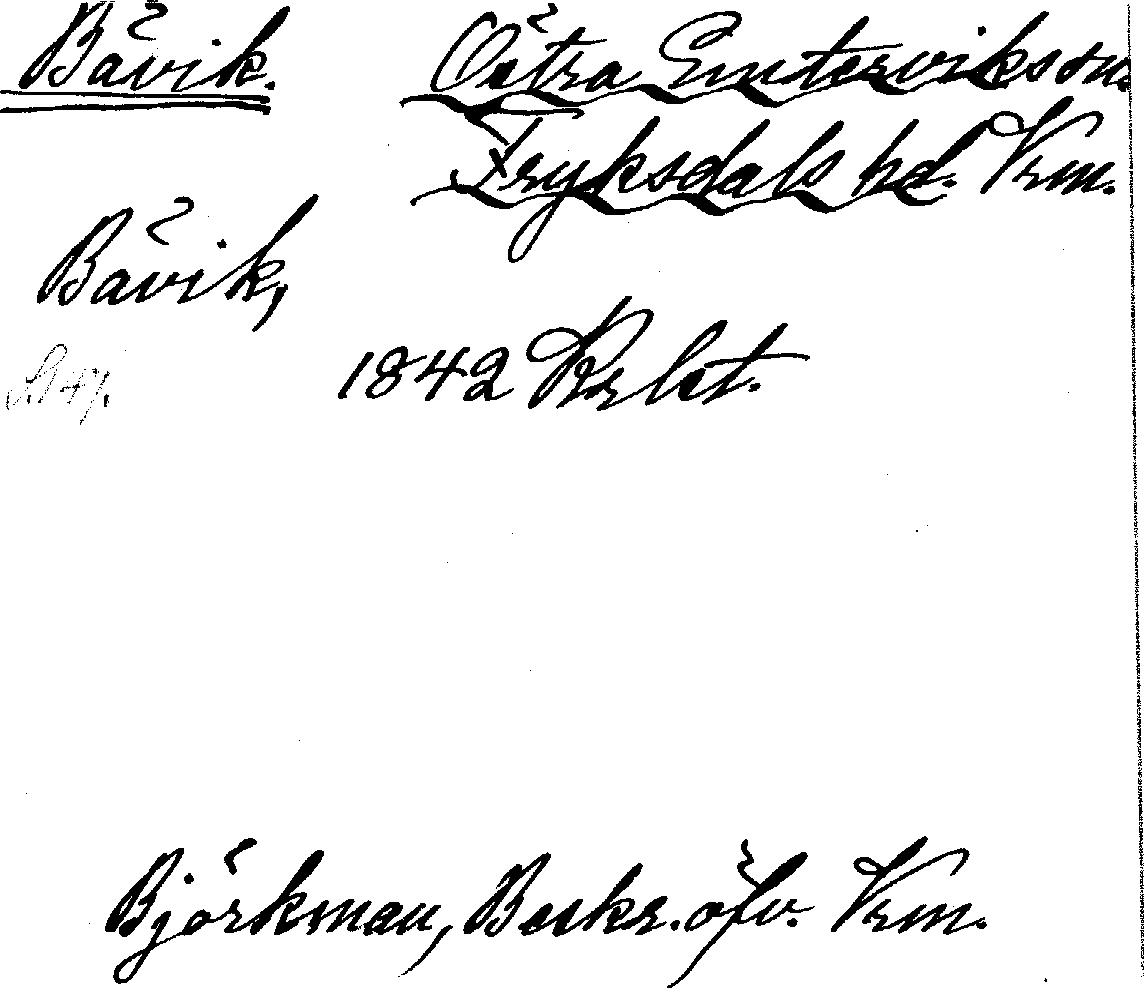 Båvik. Östra Emterviks sn.
Fryksdals hd. Vrm.
Båvik,
S. 47. 1842 Krlst.
Björkman, Beskr. öfv. Vrm.